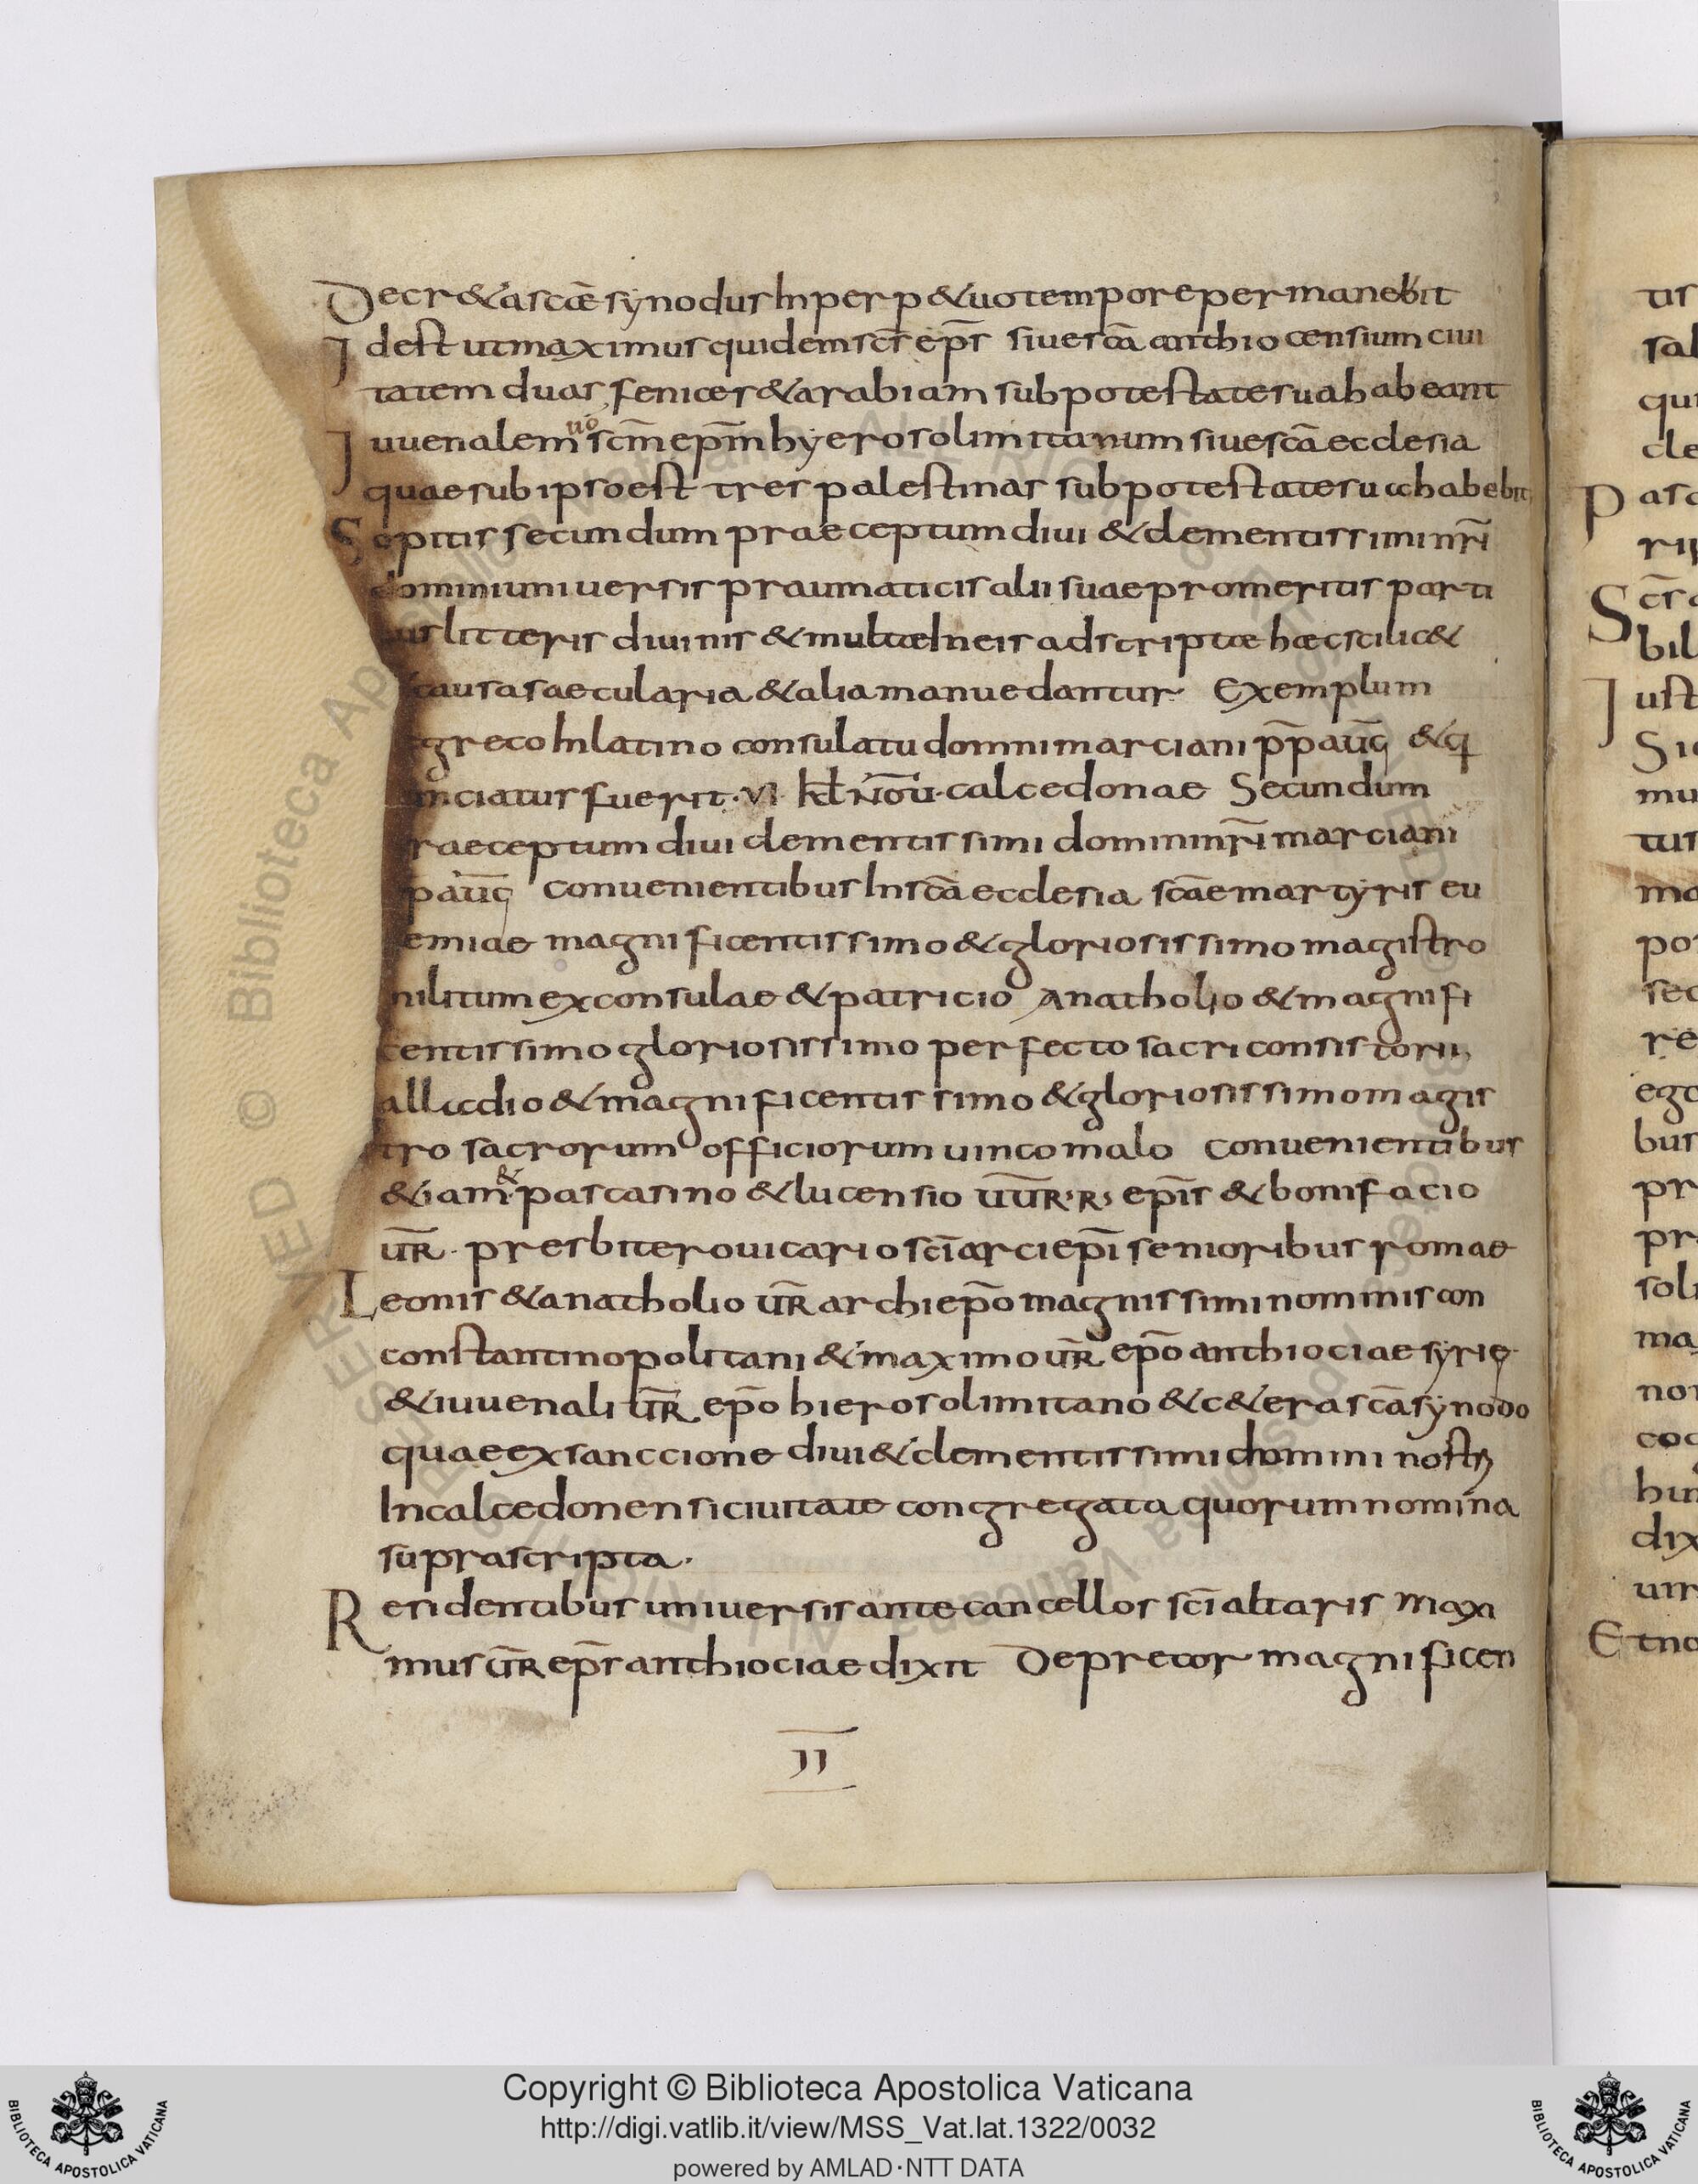 Decr& a sc̄ae synodus In perp&uo tempore permanebit
Id est ut maximus quidem sc̄s ep̄s siue sc̄a anthiocensium ciui
tatem duas fenices & arabiam sub potestate sua habeant
Iuuenalem uō sc̄m ep̄m hyerosolimitanum siue sc̄a ecclesia
quae sub ipso est tres palestinas sub potestate sua habebit
Sopitis secundum praeceptum diui & clementissimi nr̄i
domini uniuersis praumaticis alii suae promeritis parti
us litteris diuinis & multae In eis adscriptae haec scilic&
causa saecularia & alia manuedantur Exemplum
greco In latino consulatu domni marciani p̄p aūg & q
nciatus fuerit · VI · kl̄ NOū · calcedonae Secundum
raeceptum diui clementissimi domini nr̄i marciani
p aūg conuenientibus In sc̄a ecclesia sc̄ae martyris eu
emiae magnificentissimo & gloriosissimo magistro
militum ex consulae & patricio Anatholio & magnifi
centissimo gloriosissimo perfecto sacri consistorii
alladio & magnificentissimo & gloriosissimo magis
tro sacrorum officiorum uincomalo conuenientibus
& iam & pascasino & lucensio ūūR · R · ep̄is & bonifacio
ūR · presbitero uicario sc̄i arciep̄i senioribus romae
Leonis & anatholio ūR archiep̄o magnissimi nominis con
constantinopolitani & maximo ūR ep̄o anthiociae syrię
& iuuenali ūR ep̄o hierosolimitano & c&era sc̄a synodo
quae ex sanccione diui & clementissimi domini nostri
In calcedonensi ciuitate congregata quorum nomina
suprascripta ·
Residentibus uniuersis ante cancellos sc̄i altaris maxi
mus ūR ep̄s anthiociae dixit Deprecor magnificen
II
tis
sal
qui
cle
Pasc
rip
Sc̄s
bil
Iust
Sic
mu
tus
ma
pos
sec
re
ego
bus
pr
pr
soli
ma
nor
coc
hun
dix
uir
Et no
© Biblioteca Apostolica Vaticana
Copyright © Biblioteca Apostolica Vaticana
http://digi.vatlib.it/view/MSS_Vat.lat.1322/0032
powered by AMLAD·NTT DATA
BIBLIOTECA APOSTOLICA VATICANA
BIBLIOTECA APOSTOLICA VATICANA